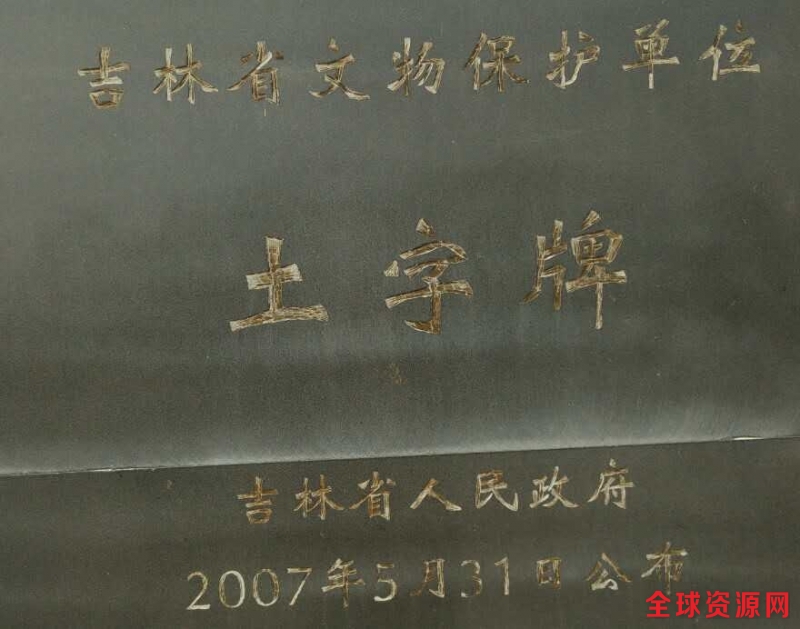 吉林省文物保护单位
土字牌
吉林省人民政府
2007年5月31日公布
全球资源网